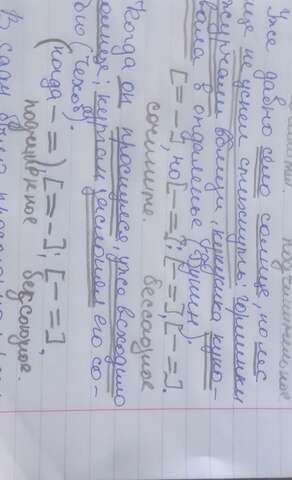 подчинительное
Уже давно село солнце, но лес
еще не успел стихнуть: горлинки
журчали вблизи, кукушка куко-
вала в отдаленье (Бунин).
[= –], но [– =]: [– =], [– =].
сочинит. бессоюзное
Когда он проснулся, уже всходило
солнце; курган заслонял его со-
бою (Чехов).
(когда – =), [= –]; [– =]
подчинительное бессоюзное.
В саду было